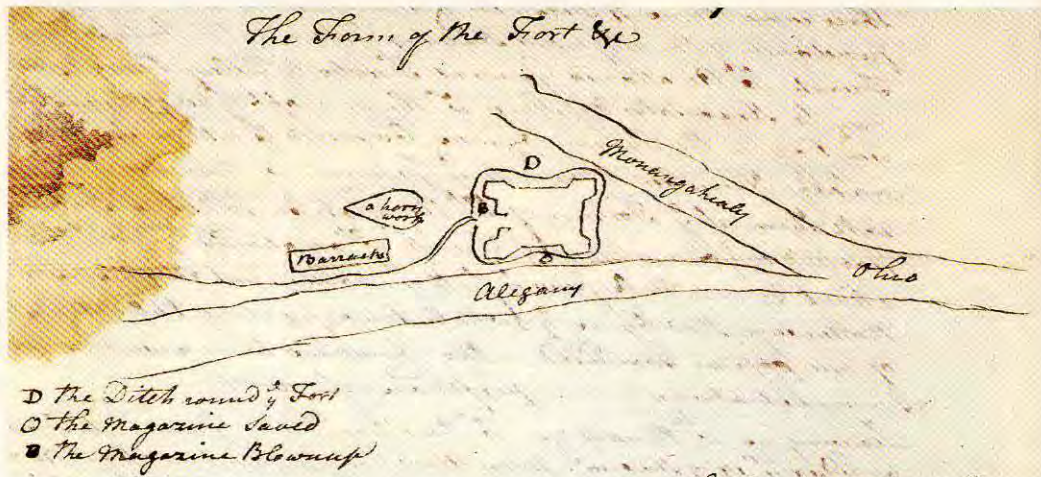 The Form of the Fort &c
D
Monangahialy
a horn
work
B
Barracks
O
Ohio
Alegany
D the Ditch round ye Fort
O the Magazine Saved
B the Magazine Blownup